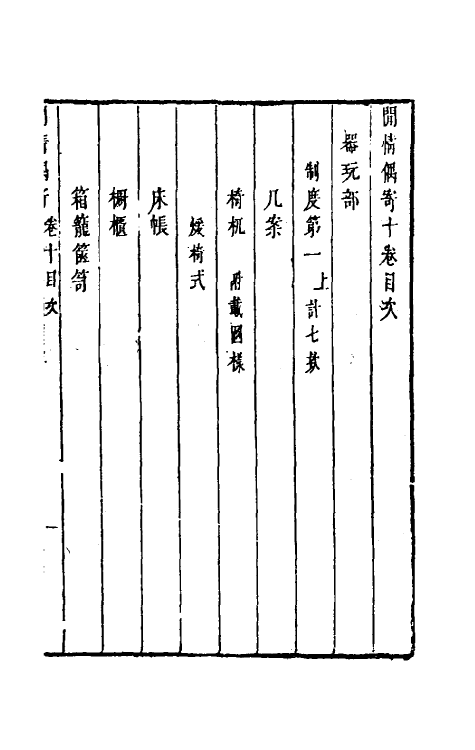 閒情偶寄十卷目次
器玩部
制度第一上計七款
几案
椅杌 附載圖樣
煖椅式
床帳
橱櫃
箱籠篋笥
卷十目次
一